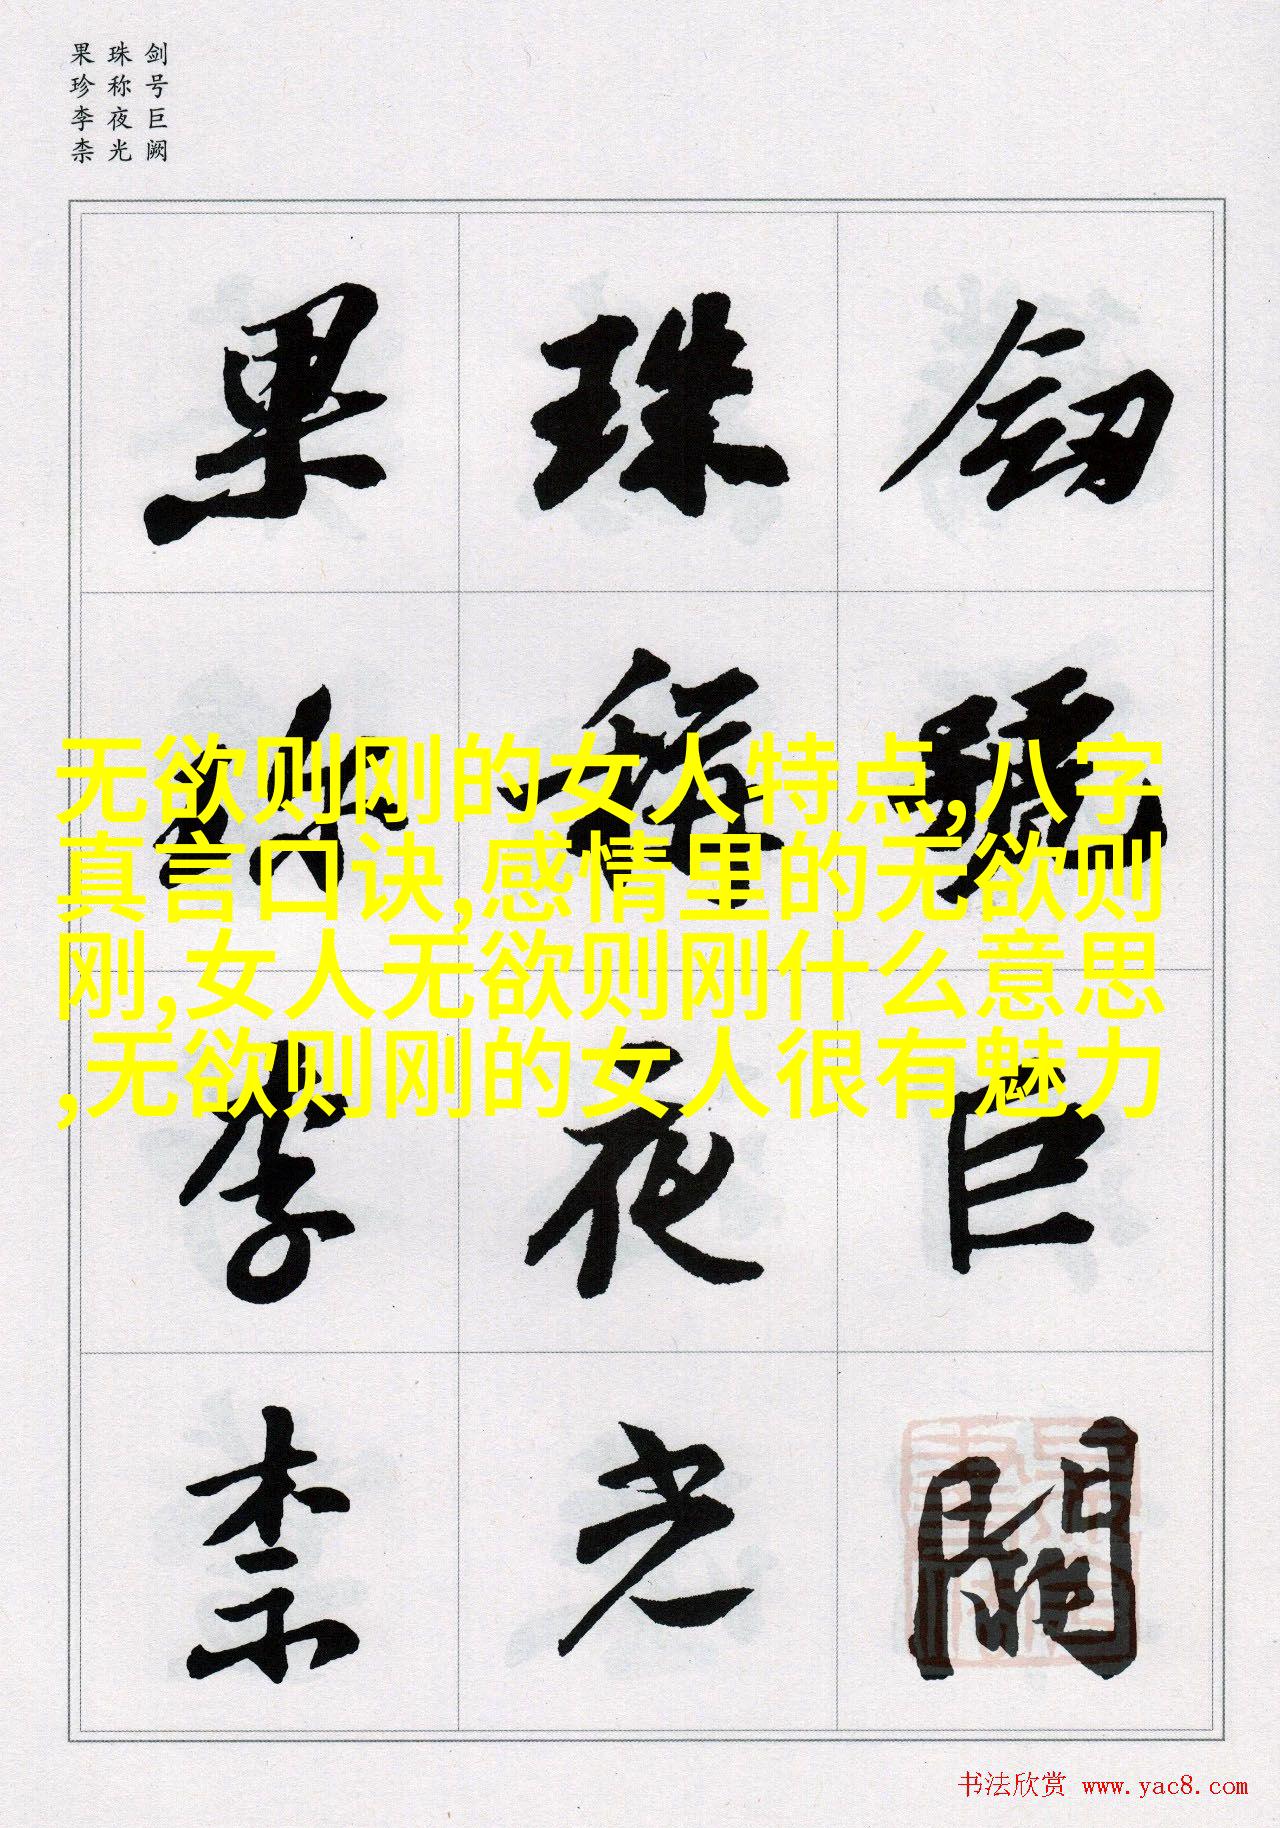 剑号巨阙
珠称夜光
果珍李柰
釼號巨闕
珠稱夜光
果珎李柰
无欲则刚的女人特点,八字
真言口诀,感情里的无欲则
刚,女人无欲则刚什么意思
,无欲则刚的女人很有魅力
书法欣赏 www.yac8.com